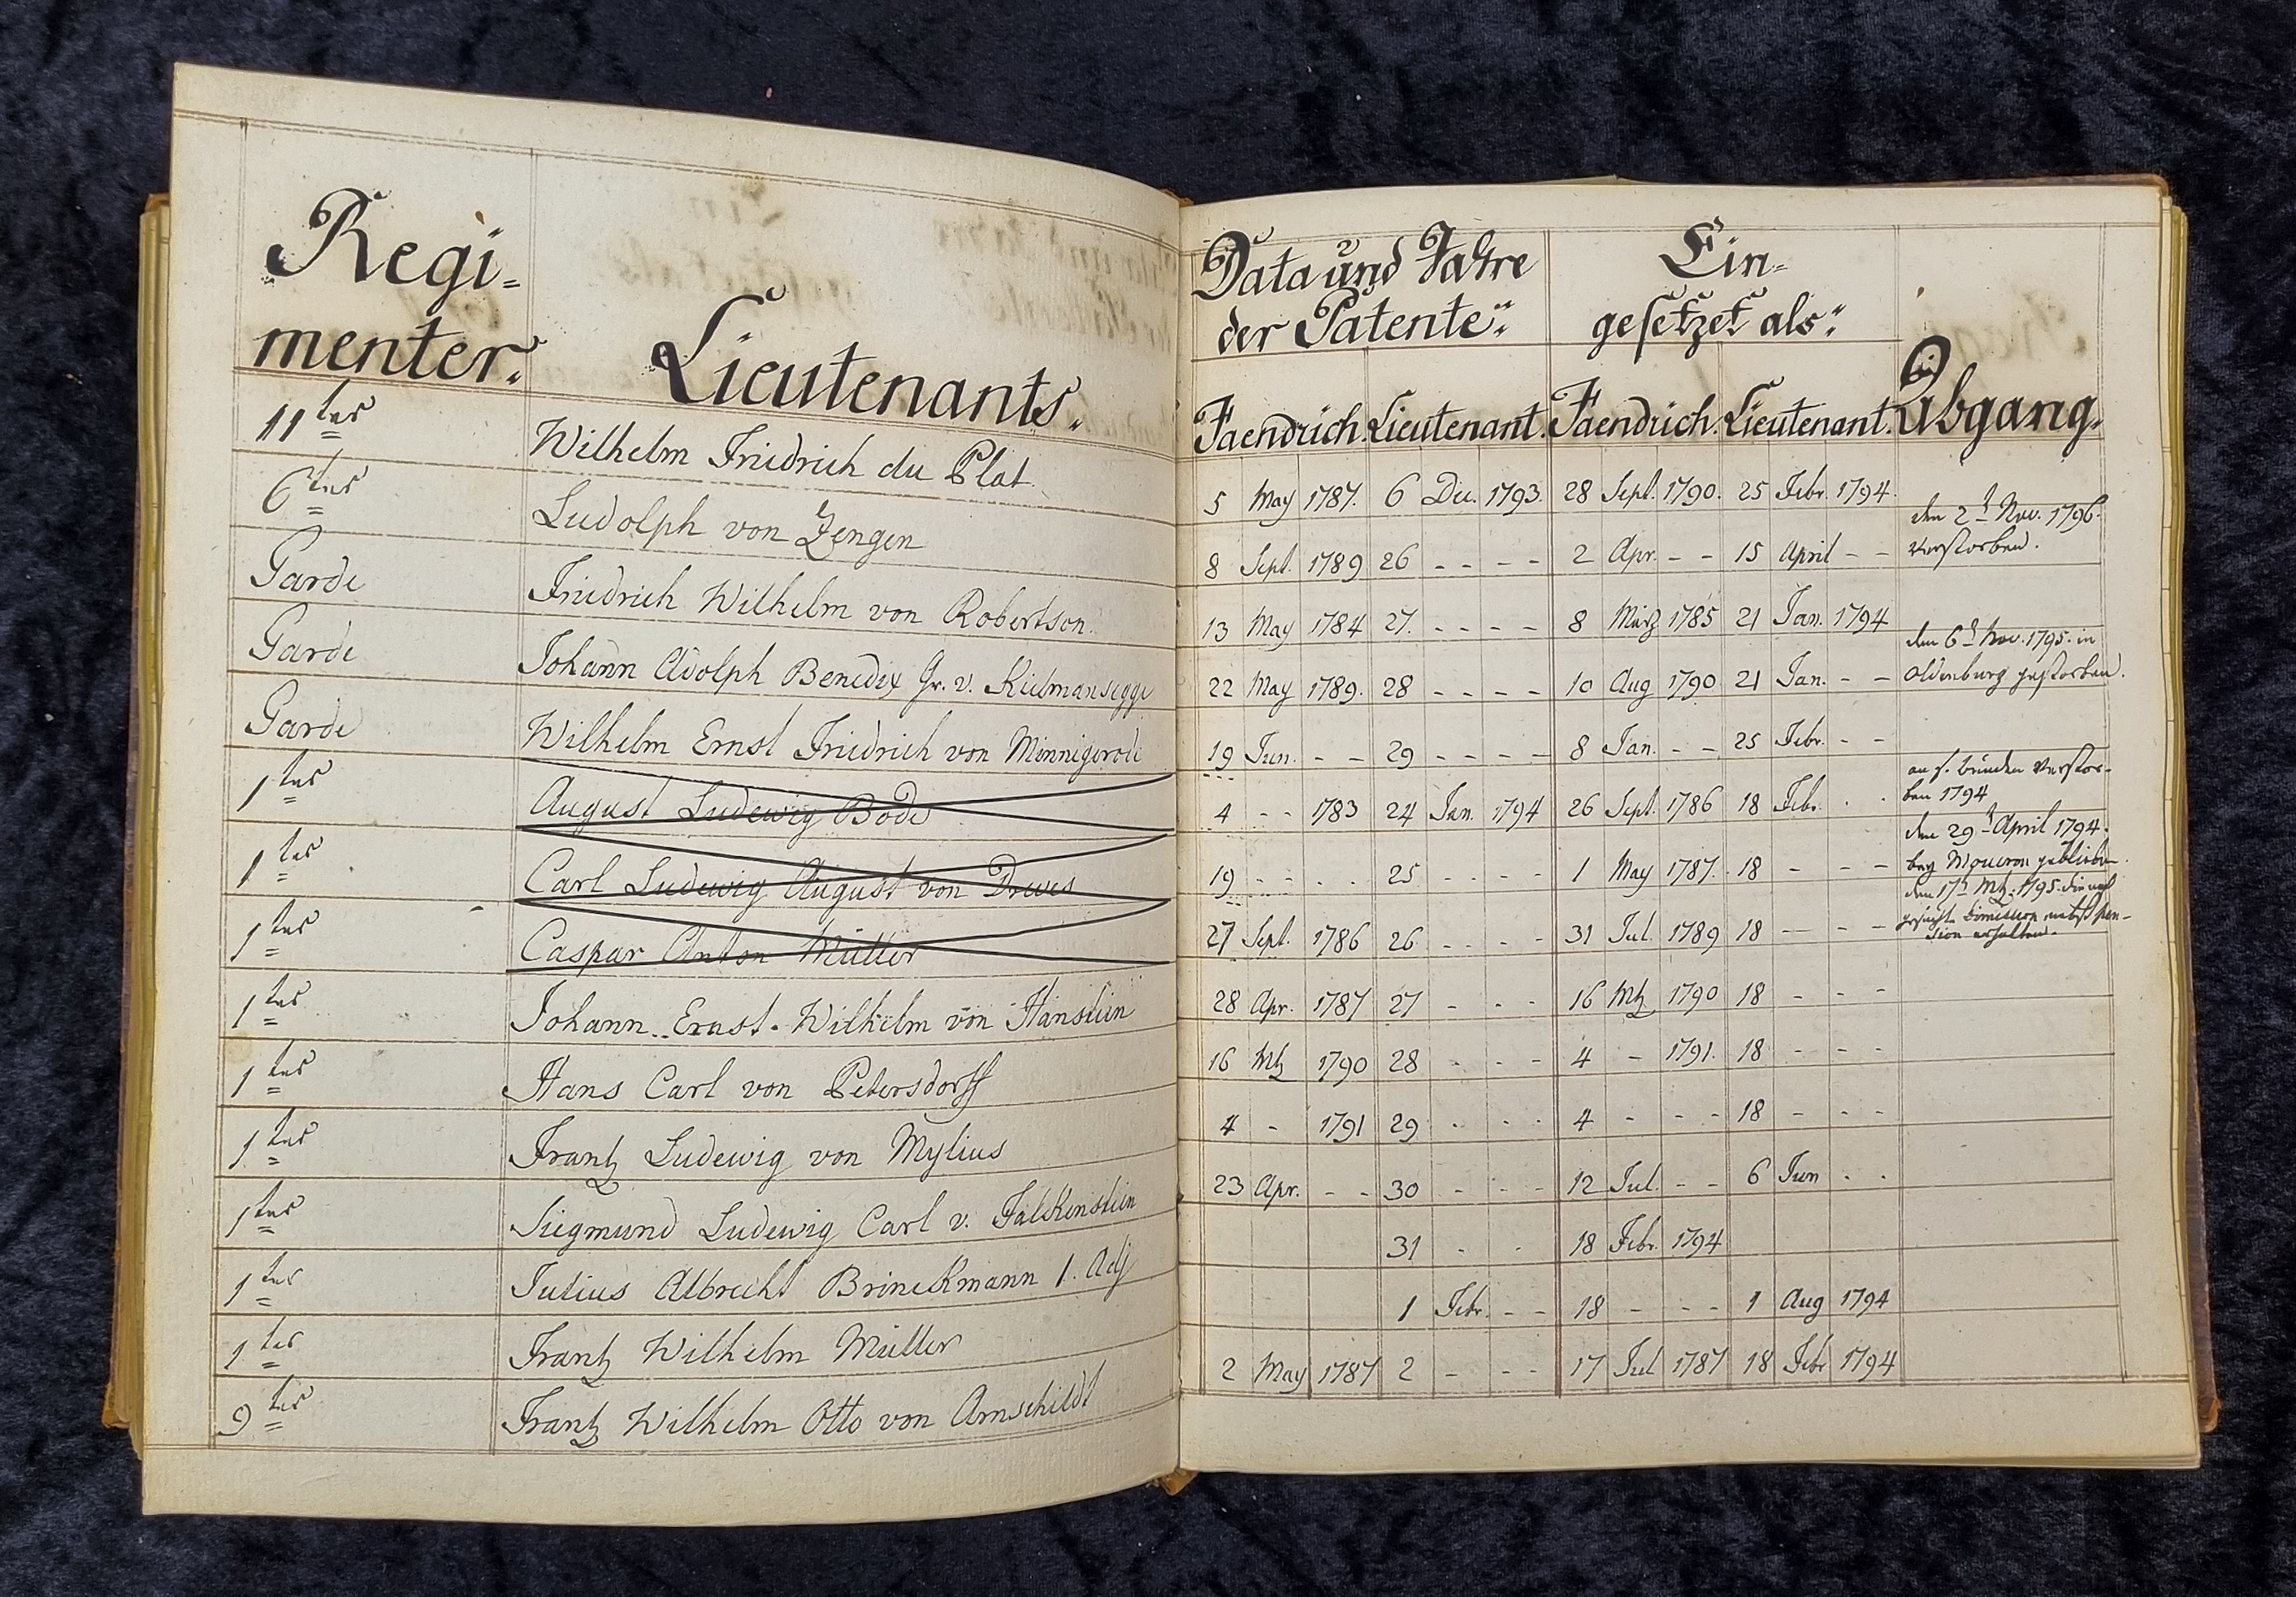 Regi-
menter.
Lieutenants.
11tes Wilhelm Friedrich du Plat.
6tes Ludolph von Zengen
Garde Friedrich Wilhelm von Robertson.
Garde Johann Adolph Benedix Gr. v. Kielmansegge
Garde Wilhelm Ernst Friedrich von Minnigerode
1tes August Ludewig Bode
1tes Carl Ludewig August von Drewes
1tes Caspar Anton Müller
1tes Johann Ernst Wilhelm von Hanstein
1tes Hans Carl von Petersdorff
1tes Frantz Ludewig von Mylius
1tes Siegmund Ludewig Carl v. Falckenstein
1tes Julius Albrecht Brinckmann 1. Adj
1tes Frantz Wilhelm Müller
9tes Frantz Wilhelm Otto von Arnschildt
Data und Jahre
der Patente:
Ein-
gesetzet als:
Abgang.
Faendrich. Lieutenant. Faendrich. Lieutenant.
5 May 1787. 6 Dec. 1793. 28 Sept. 1790. 25 Febr. 1794.
8 Sept. 1789 26 - - - - 2 Apr. - - 15 April - - den 2t Nov. 1796.
verstorben.
13 May 1784 27. - - - - 8 März 1785 21 Jan. 1794
22 May 1789. 28 - - - - 10 Aug 1790 21 Jan. - - den 6t Nov. 1795. in
Oldenburg gestorben.
19 Jun. - - 29 - - - - 8 Jan. - - 25 Febr. - -
4 - - 1783 24 Jan. 1794 26 Sept. 1786 18 Febr. - - an s. Wunden verstor-
ben 1794
19 - - - - 25 - - - - 1 May 1787. 18 - - - den 29t April 1794.
bey Moucron geblieben.
27 Sept. 1786 26 - - - - 31 Jul. 1789 18 - - - den 17t Mtz. 1795. die nach
gesuchte Dimission nebst Pen-
sion erhalten.
28 Apr. 1787 27 - - - 16 Mtz 1790 18 - - -
16 Mtz 1790 28 - - - 4 - 1791. 18 - - -
4 - 1791 29 - - - 4 - - - 18 - - -
23 Apr. - - 30 - - - 12 Jul. - - 6 Jun - -
31 - - 18 Febr. 1794
1 Febr. - - 18 - - - 1 Aug 1794
2 May 1787 2 - - - 17 Jul 1787 18 Febr 1794